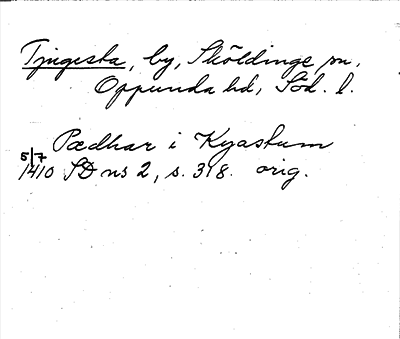 Tjugesta, by, Sköldinge sn,
Oppunda hd, Söd. l.
Pædhar i Kyastum
5/7 1410 SD ns 2, s. 318. orig.